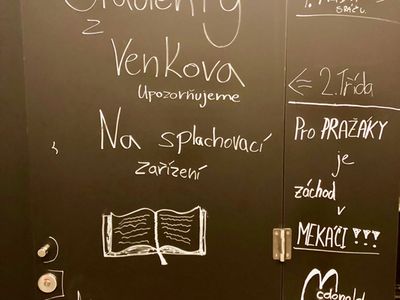 Studenty
z
Venkova
Upozorňujeme
Na splachovací
zařízení
⇐ 2. Třída
Pro PRAŽÁKY
je
záchod
v
MEKÁČI !!!
Mcdonald